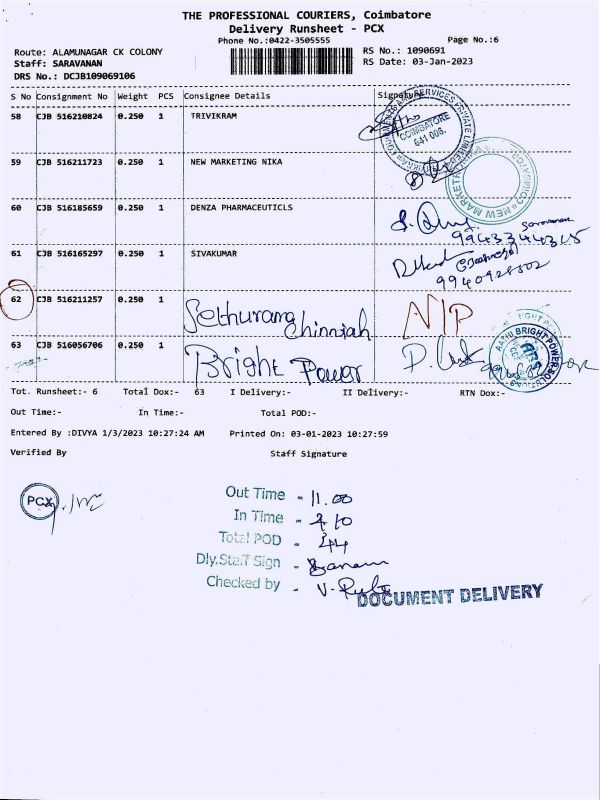 THE PROFESSIONAL COURIERS, Coimbatore
Delivery Runsheet - PCX
Phone No.:0422-3505555 Page No.:6
Route: ALAMUNAGAR CK COLONY RS No.: 1090691
Staff: SARAVANAN RS Date: 03-Jan-2023
DRS No.: DCJB109069106
S No Consignment No Weight PCS Consignee Details Signature
58 CJB 516210824 0.250 1 TRIVIKRAM
COIMBATORE
641 006.
59 CJB 516211723 0.250 1 NEW MARKETING NIKA
NEW MARKETING
60 CJB 516185659 0.250 1 DENZA PHARMACEUTICLS
Saravanan
9943344315
61 CJB 516165297 0.250 1 SIVAKUMAR
62 CJB 516211257 0.250 1 Sethurang Chinniah N/P
63 CJB 516056706 0.250 1 Bright Power
Tot. Runsheet:- 6 Total Dox:- 63 I Delivery:- II Delivery:- RTN Dox:-
Out Time:- In Time:- Total POD:-
Entered By :DIVYA 1/3/2023 10:27:24 AM Printed On: 03-01-2023 10:27:59
Verified By Staff Signature
PCX
Out Time - 11.00
In Time -
Total POD - 44
Dly.Staff Sign -
Checked by -
DOCUMENT DELIVERY